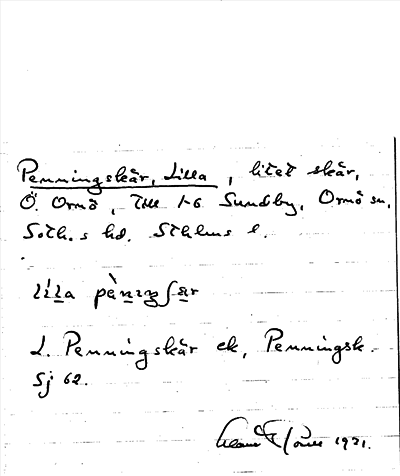 Penningskär, Lilla, litet skär,
Ö. Ornö, Till 1-6 Sundby, Ornö sn,
Soth.s hd. Sthlms l.
lìla pèniŋʃær
L. Penningskär ek, Penningsk.
Sj 62.
1921.